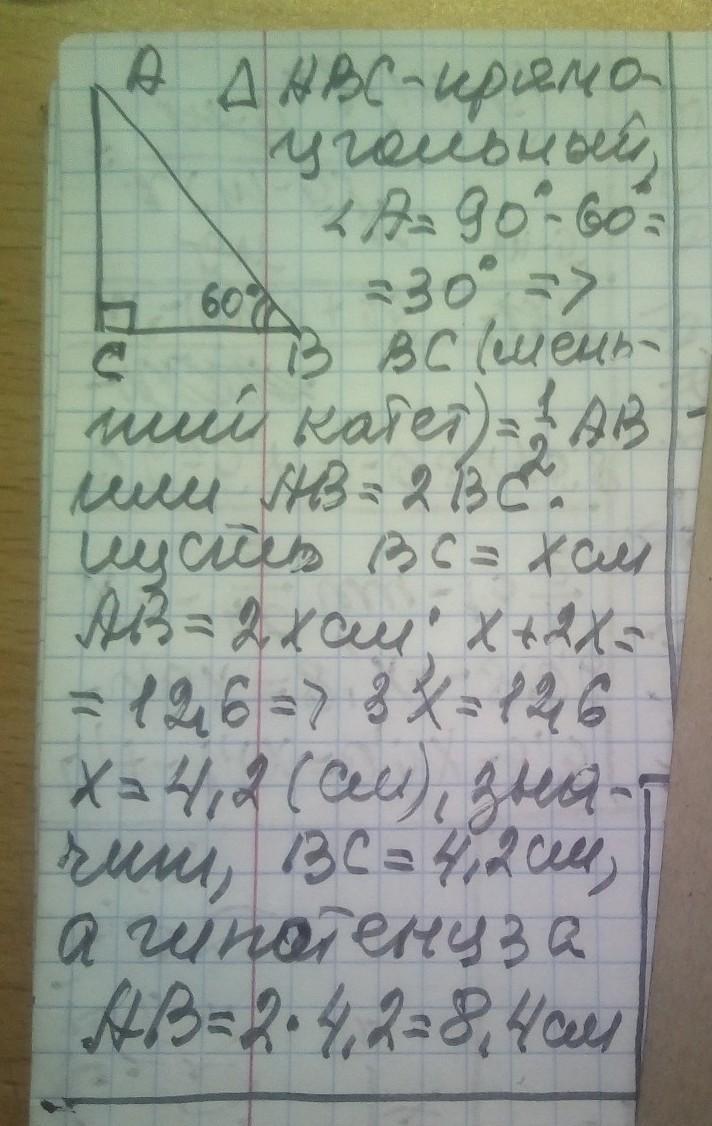 A △ ABC - прямо-
угольный,
∠A = 90° - 60° =
60° = 30° =>
C B BC (мень-
ший катет) = 1/2 AB
или AB = 2 BC.
пусть BC = x см
AB = 2x см; x + 2x =
= 12,6 => 3x = 12,6
x = 4,2 (см), зна-
чит, BC = 4,2 см,
а гипотенуза
AB = 2 · 4,2 = 8,4 см